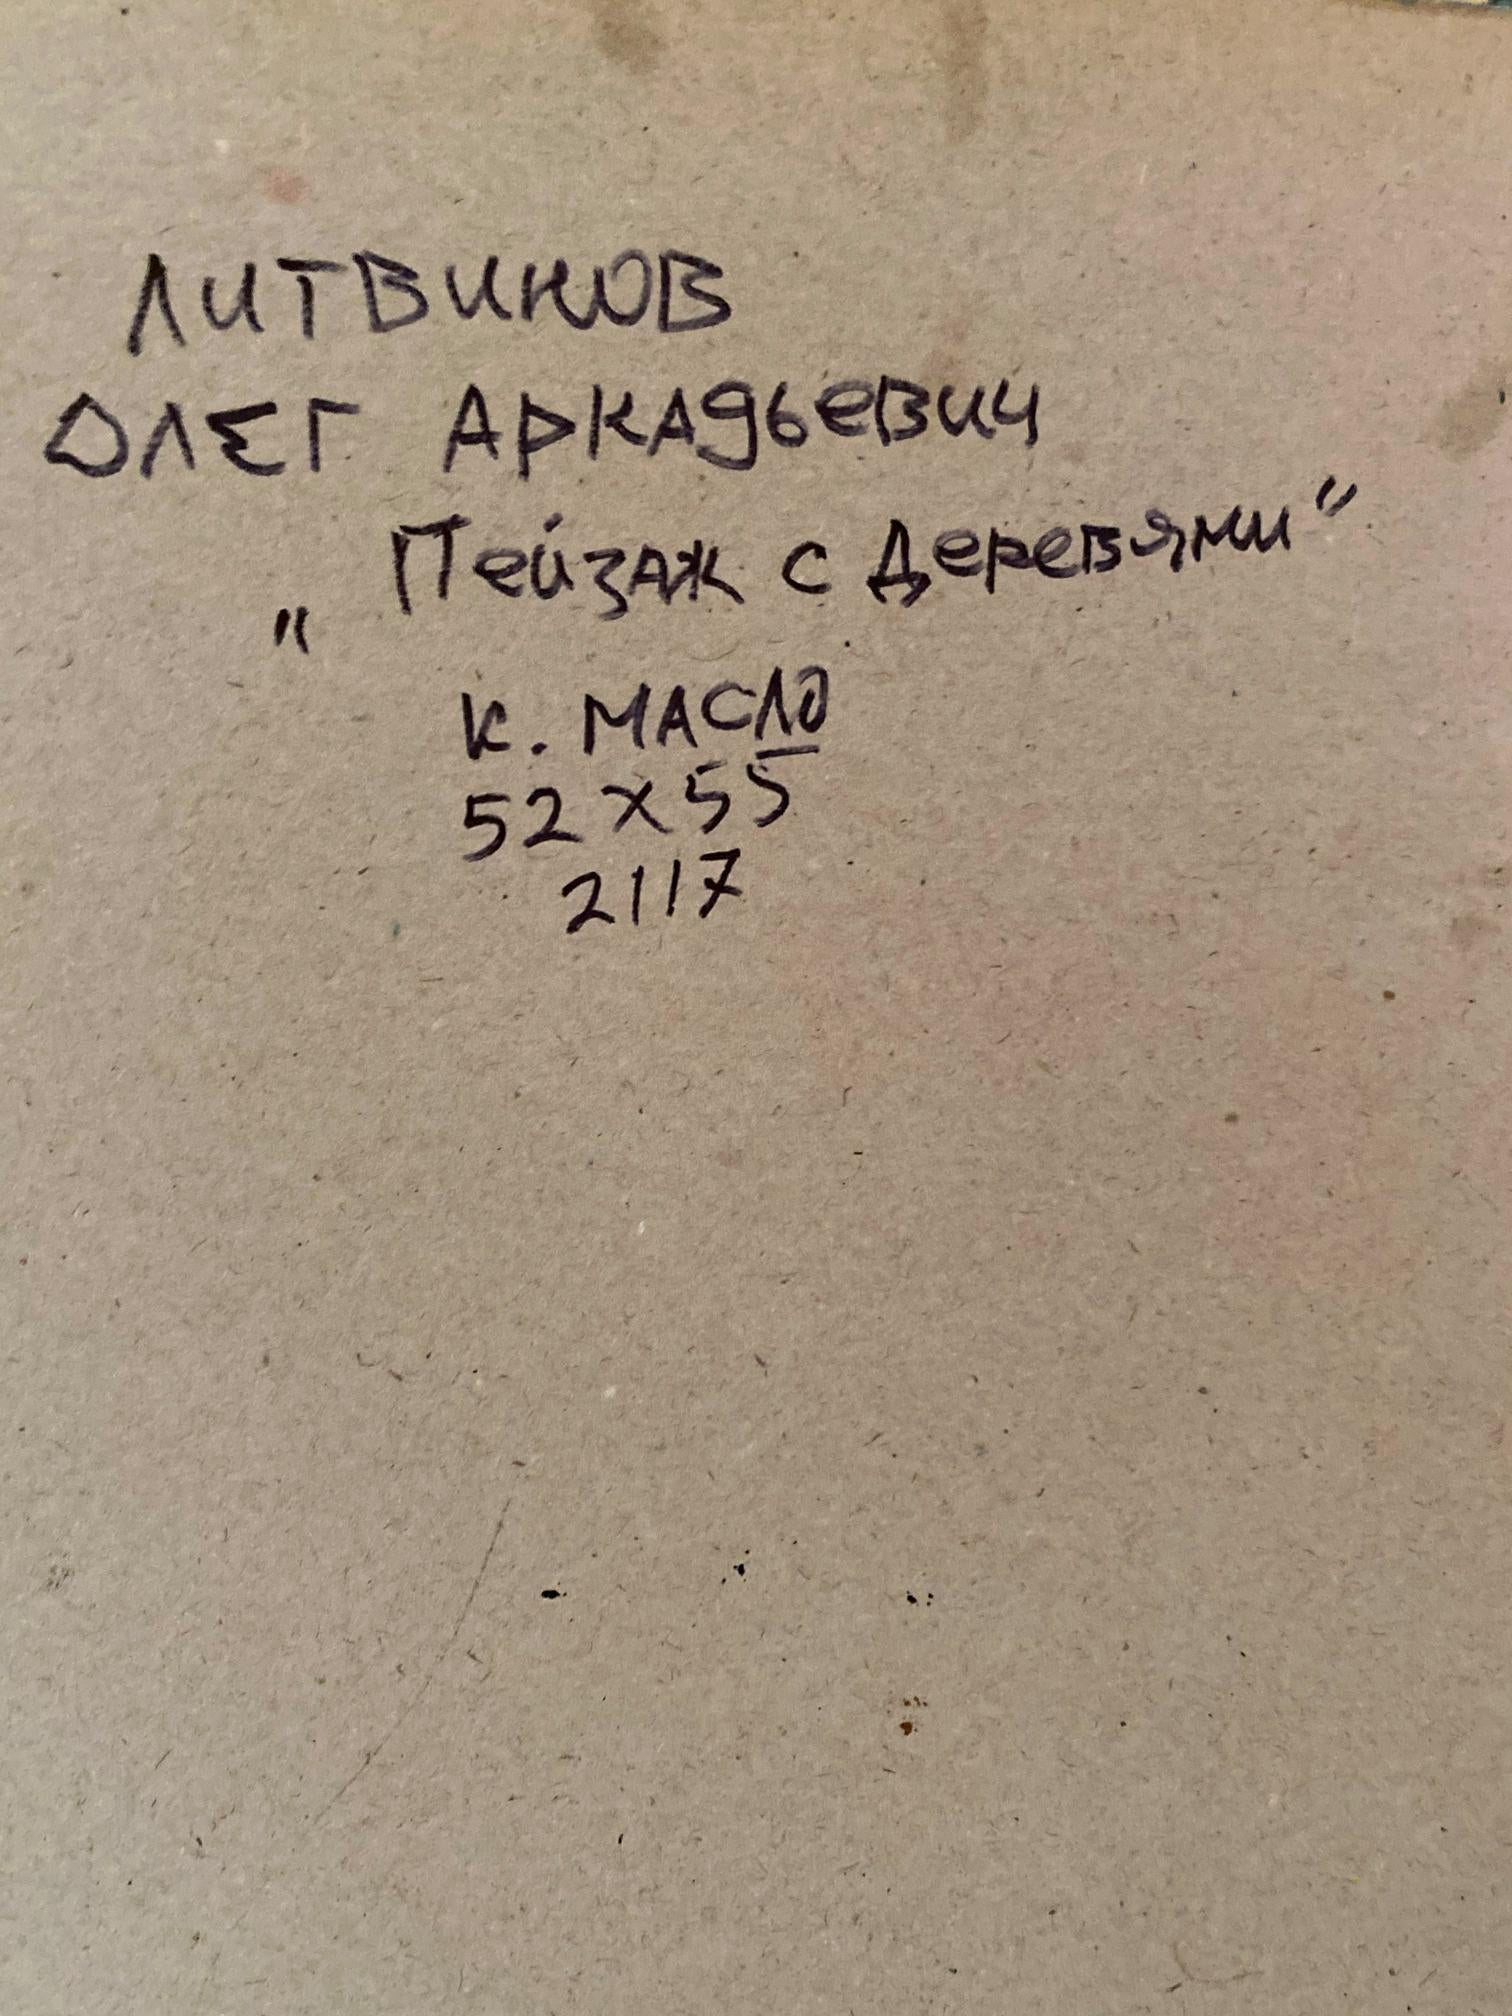 ЛИТВИНОВ
ОЛЕГ АРКАДЬЕВИЧ
„Пейзаж с Деревями"
К. МАСЛО
52 х 55
2117